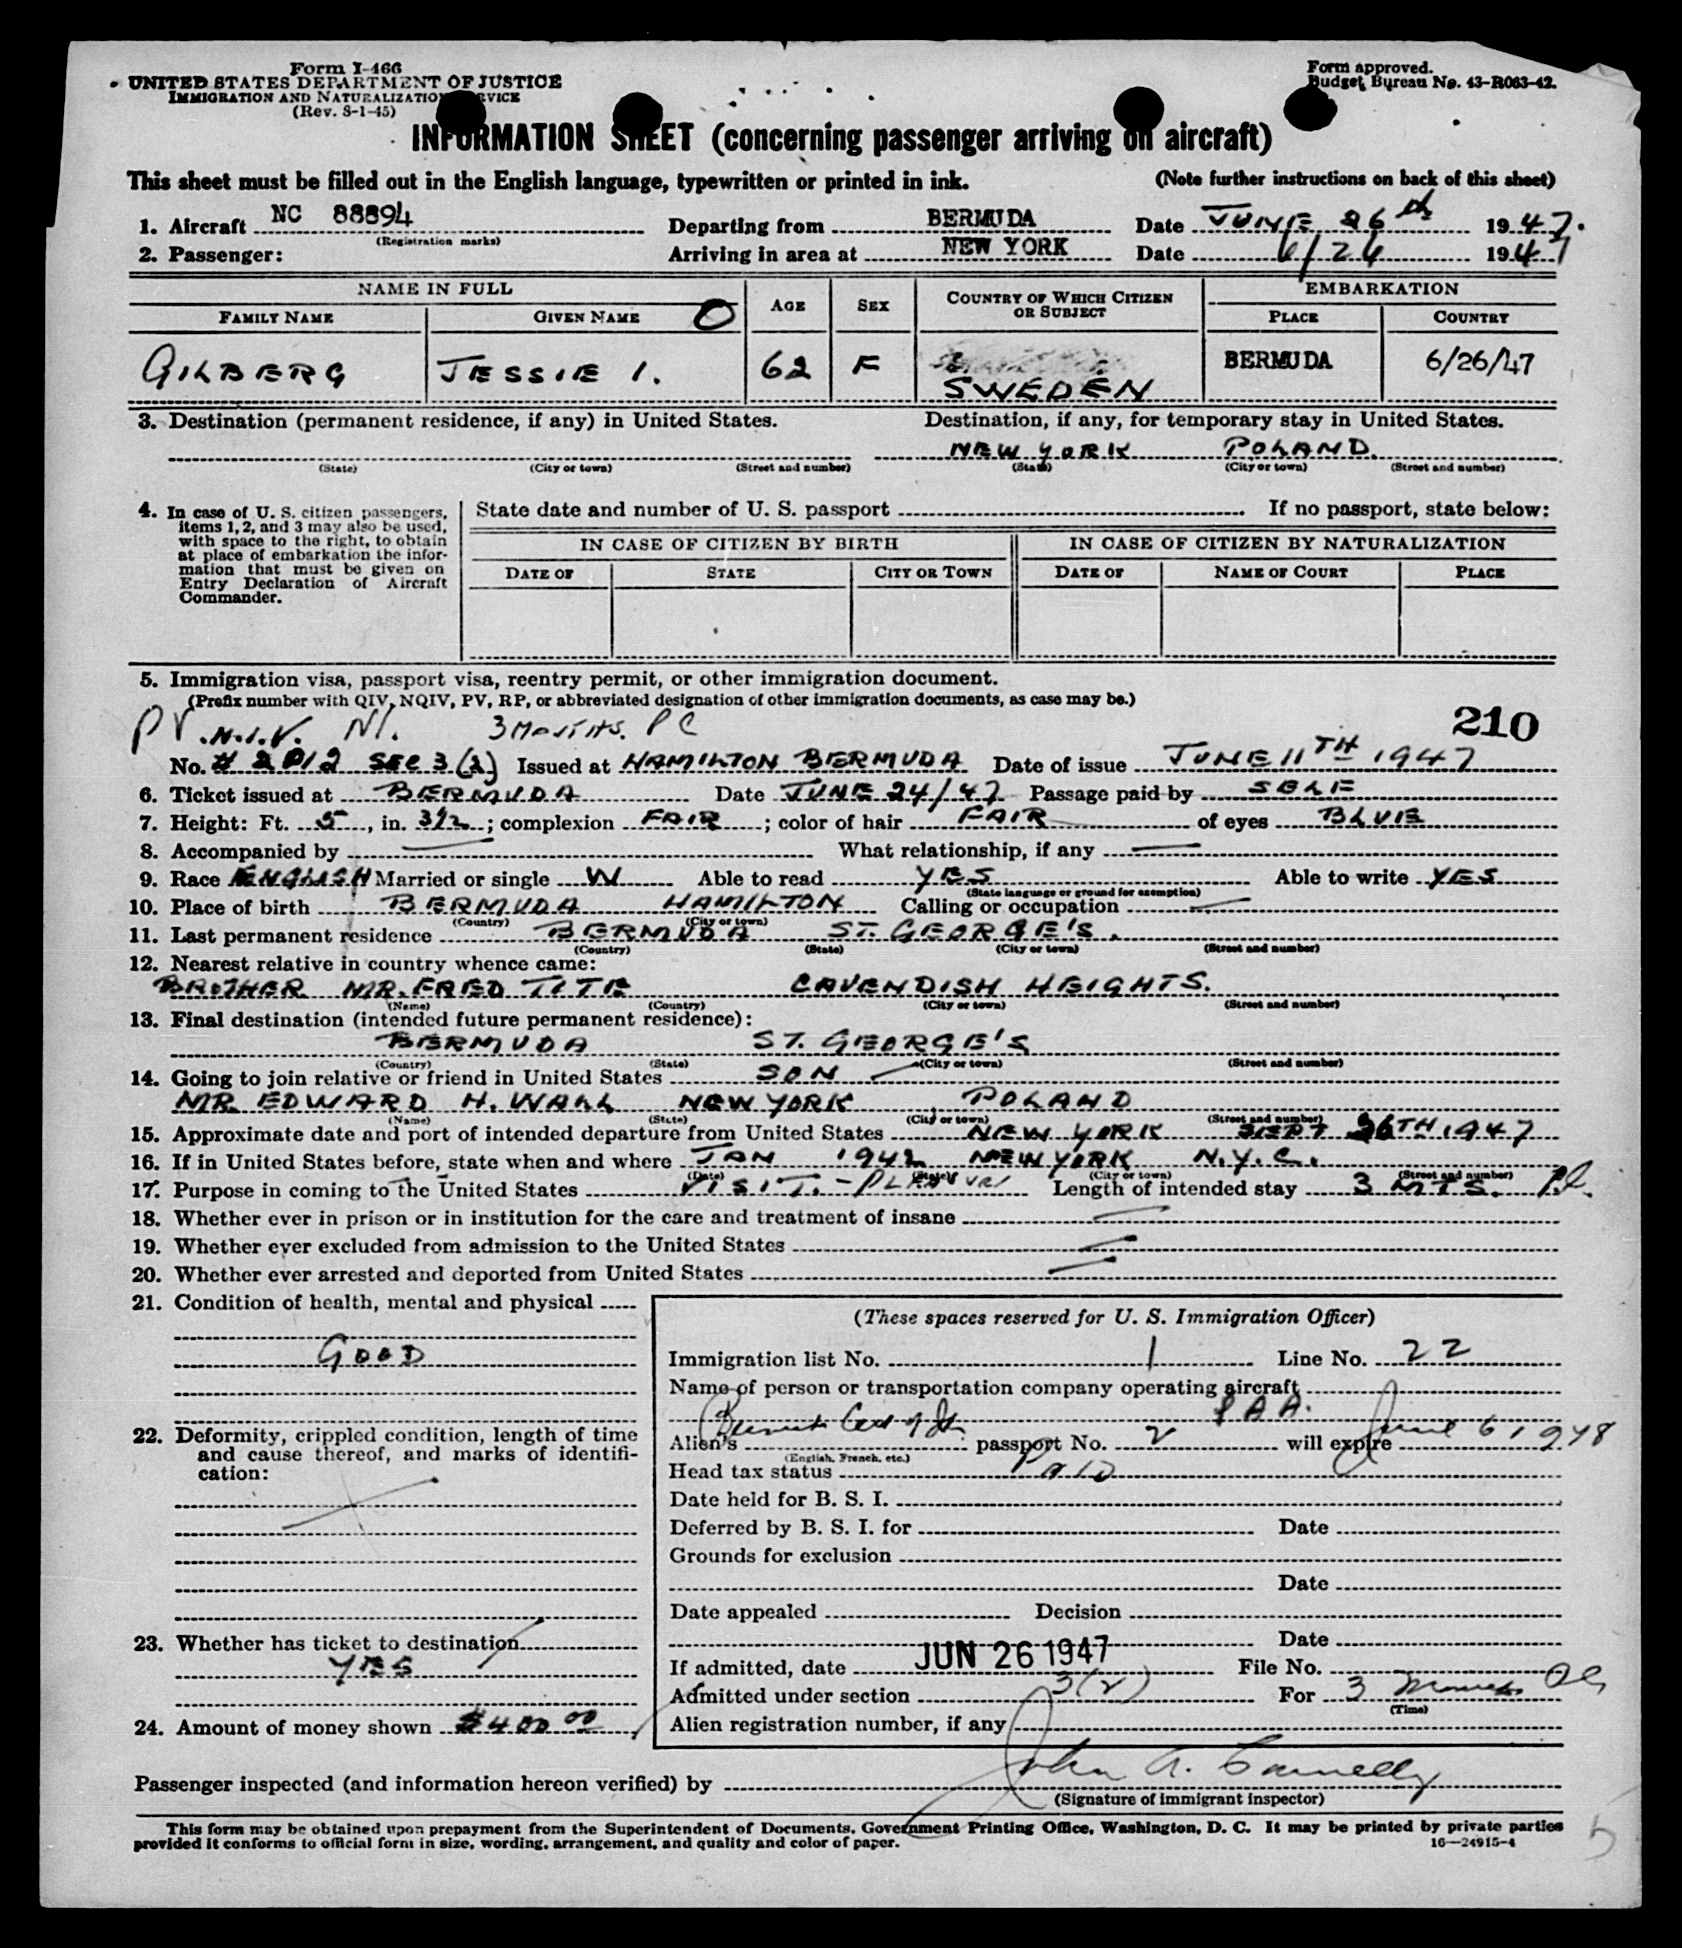 Form I-466
UNITED STATES DEPARTMENT OF JUSTICE
IMMIGRATION AND NATURALIZATION SERVICE
(Rev. 8-1-45)
Form approved.
Budget Bureau No. 43-R063-42.
INFORMATION SHEET (concerning passenger arriving on aircraft)
This sheet must be filled out in the English language, typewritten or printed in ink. (Note further instructions on back of this sheet)
1. Aircraft NC 88894 Departing from BERMUDA Date JUNE 26th 1947.
(Registration marks)
2. Passenger: Arriving in area at NEW YORK Date 6/26 1947
NAME IN FULL AGE SEX COUNTRY OF WHICH CITIZEN OR SUBJECT EMBARKATION
FAMILY NAME GIVEN NAME O PLACE COUNTRY
GILBERG JESSIE I. 62 F SWEDEN BERMUDA 6/26/47
3. Destination (permanent residence, if any) in United States. Destination, if any, for temporary stay in United States.
NEW YORK POLAND.
(State) (City or town) (Street and number) (State) (City or town) (Street and number)
4. In case of U. S. citizen passengers, items 1, 2, and 3 may also be used, with space to the right, to obtain at place of embarkation the information that must be given on Entry Declaration of Aircraft Commander.
State date and number of U. S. passport If no passport, state below:
IN CASE OF CITIZEN BY BIRTH IN CASE OF CITIZEN BY NATURALIZATION
DATE OF STATE CITY OR TOWN DATE OF NAME OF COURT PLACE
5. Immigration visa, passport visa, reentry permit, or other immigration document.
(Prefix number with QIV, NQIV, PV, RP, or abbreviated designation of other immigration documents, as case may be.)
PV .N.I.V. NI. 3 MONTHS. PC 210
No. # 2012 SEC 3 (2) Issued at HAMILTON BERMUDA Date of issue JUNE 11TH 1947
6. Ticket issued at BERMUDA Date JUNE 24/47 Passage paid by SELF
7. Height: Ft. 5, in. 3½; complexion FAIR; color of hair FAIR of eyes BLUE
8. Accompanied by — What relationship, if any —
9. Race ENGLISH Married or single W Able to read YES Able to write YES
(State language or ground for exemption)
10. Place of birth BERMUDA HAMILTON Calling or occupation —
(Country) (City or town)
11. Last permanent residence BERMUDA ST. GEORGE'S.
(Country) (State) (City or town) (Street and number)
12. Nearest relative in country whence came:
BROTHER MR. FRED TITE CAVENDISH HEIGHTS.
(Name) (Country) (City or town) (Street and number)
13. Final destination (intended future permanent residence):
BERMUDA ST. GEORGE'S
(Country) (State) (City or town) (Street and number)
14. Going to join relative or friend in United States SON —
MR. EDWARD H. WALL NEW YORK, POLAND
(Name) (State) (City or town) (Street and number)
15. Approximate date and port of intended departure from United States NEW YORK SEPT 26TH 1947
16. If in United States before, state when and where JAN 1942 NEW YORK N.Y.C.
(Date) (State) (City or town) (Street and number)
17. Purpose in coming to the United States VISIT.-PLEASURE Length of intended stay 3 MTS.
18. Whether ever in prison or in institution for the care and treatment of insane —
19. Whether ever excluded from admission to the United States —
20. Whether ever arrested and deported from United States —
21. Condition of health, mental and physical
GOOD
22. Deformity, crippled condition, length of time and cause thereof, and marks of identification:
23. Whether has ticket to destination
YES
24. Amount of money shown $400 00
(These spaces reserved for U. S. Immigration Officer)
Immigration list No. 1 Line No. 22
Name of person or transportation company operating aircraft
PAA.
Alien's passport No. 2 will expire June 6 1948
(English, French, etc.)
Head tax status Paid
Date held for B. S. I.
Deferred by B. S. I. for Date
Grounds for exclusion
Date
Date appealed Decision
Date
If admitted, date JUN 26 1947 File No.
Admitted under section 3(2) For 3 Months
(Time)
Alien registration number, if any
Passenger inspected (and information hereon verified) by John A. Connelly
(Signature of immigrant inspector)
This form may be obtained upon prepayment from the Superintendent of Documents, Government Printing Office, Washington, D. C. It may be printed by private parties
provided it conforms to official form in size, wording, arrangement, and quality and color of paper. 16—24915-4
5